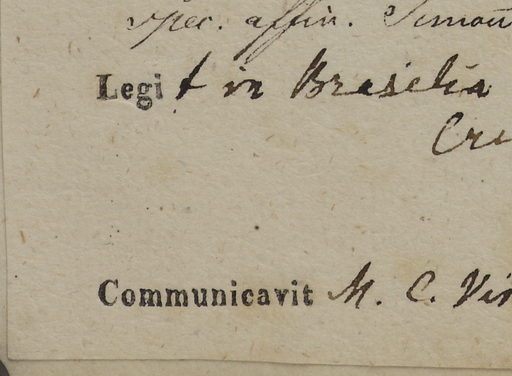 spec. affin. Simon
Legit in Brasilia
Cru
Communicavit M. C. Vin